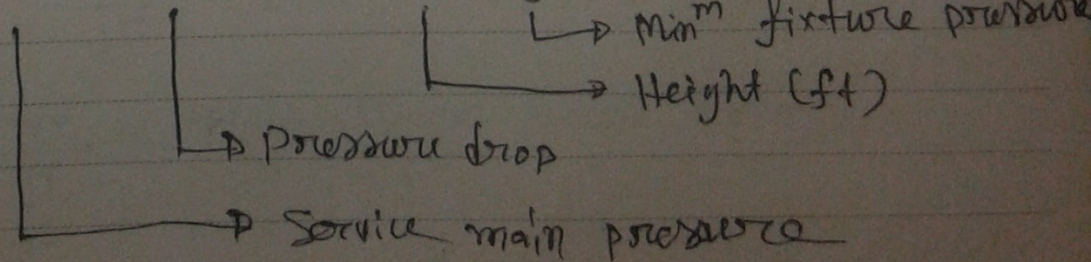 Minᵐ fixture pressure
Height (ft)
pressure drop
Service main pressure